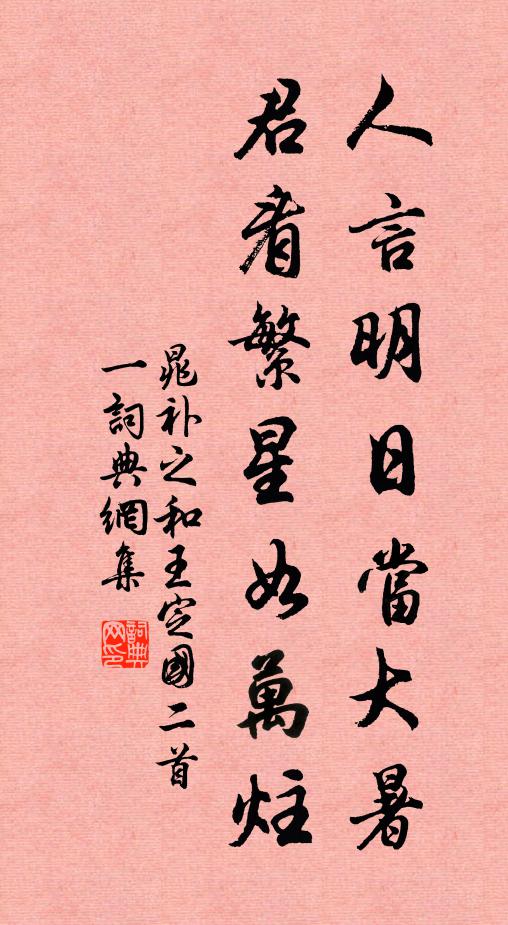 人言明日當大暑
君看繁星如萬炷
晁补之和王定國二首
一詞典網集
詞典网印